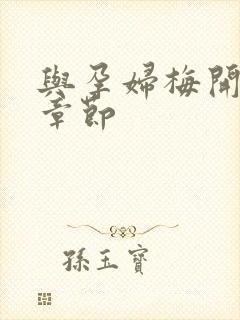 與孕婦梅開
章節
孫玉寶